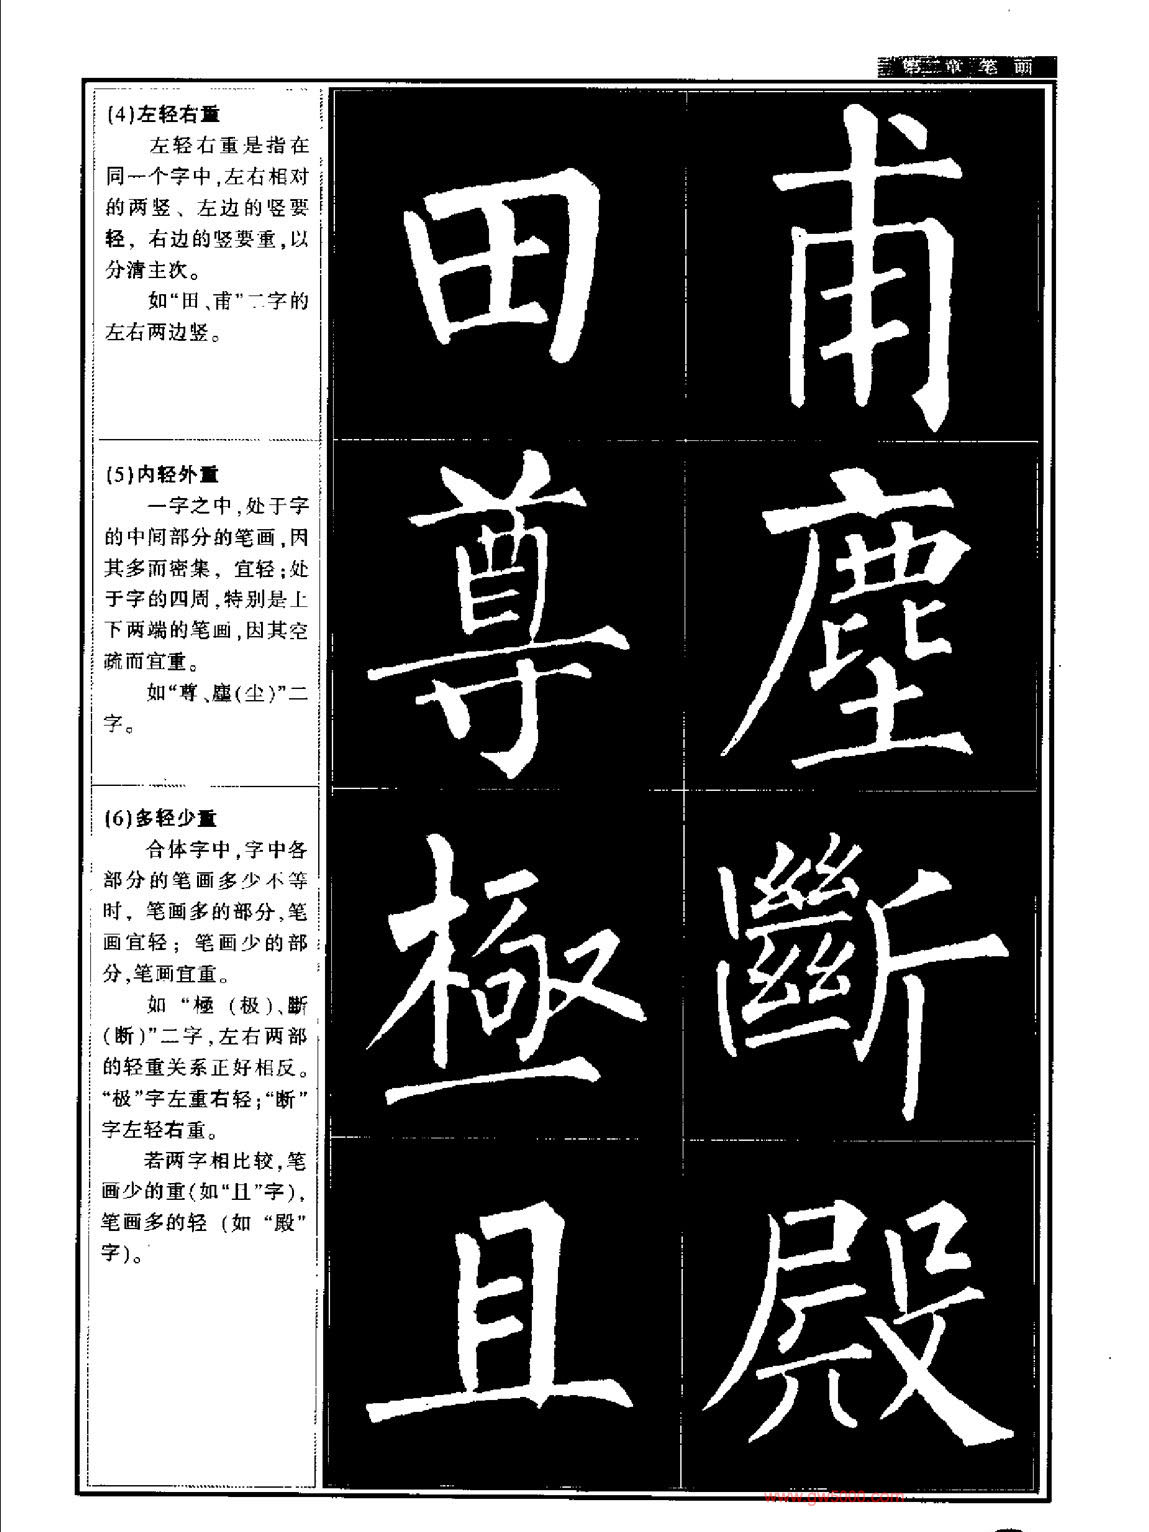 第二章 笔画
(4)左轻右重
左轻右重是指在
同一个字中,左右相对
的两竖、左边的竖要
轻，右边的竖要重,以
分清主次。
如“田、甫”二字的
左右两边竖。
田 甫
(5)内轻外重
一字之中,处于字
的中间部分的笔画,因
其多而密集，宜轻;处
于字的四周,特别是上
下两端的笔画,因其空
疏而宜重。
如“尊、塵(尘)”二
字。
尊 塵
(6)多轻少重
合体字中,字中各
部分的笔画多少不等
时，笔画多的部分,笔
画宜轻；笔画少的部
分,笔画宜重。
如“極(极)、斷
(断)”二字,左右两部
的轻重关系正好相反。
“极”字左重右轻;“断”
字左轻右重。
若两字相比较,笔
画少的重(如“且”字),
笔画多的轻(如“殿”
字)。
極 斷
且 殿
www.gw5000.com